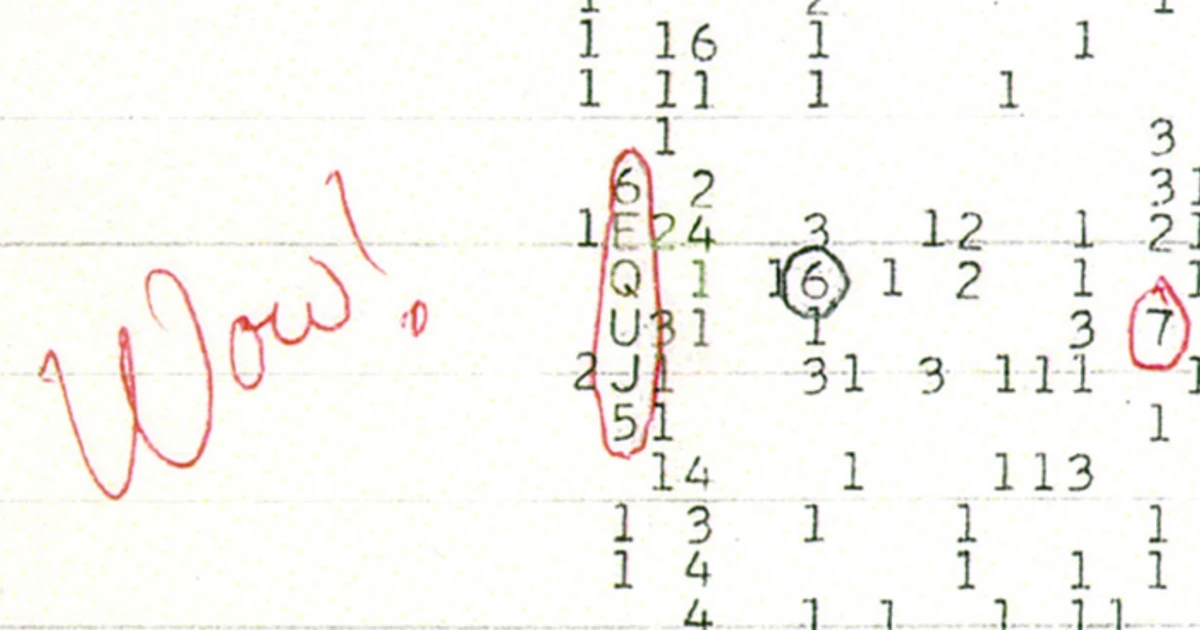 1 2 1
1 16 1 1
1 11 1 1
1 3
6 2 31
1E24 3 12 1 21
Q 1 16 1 2 1 1
U31 1 3 7
2J1 31 3 111 1
51 1
14 1 113
1 3 1 1 1
1 4 1 1 1
4 1 1 1 11
Wow!